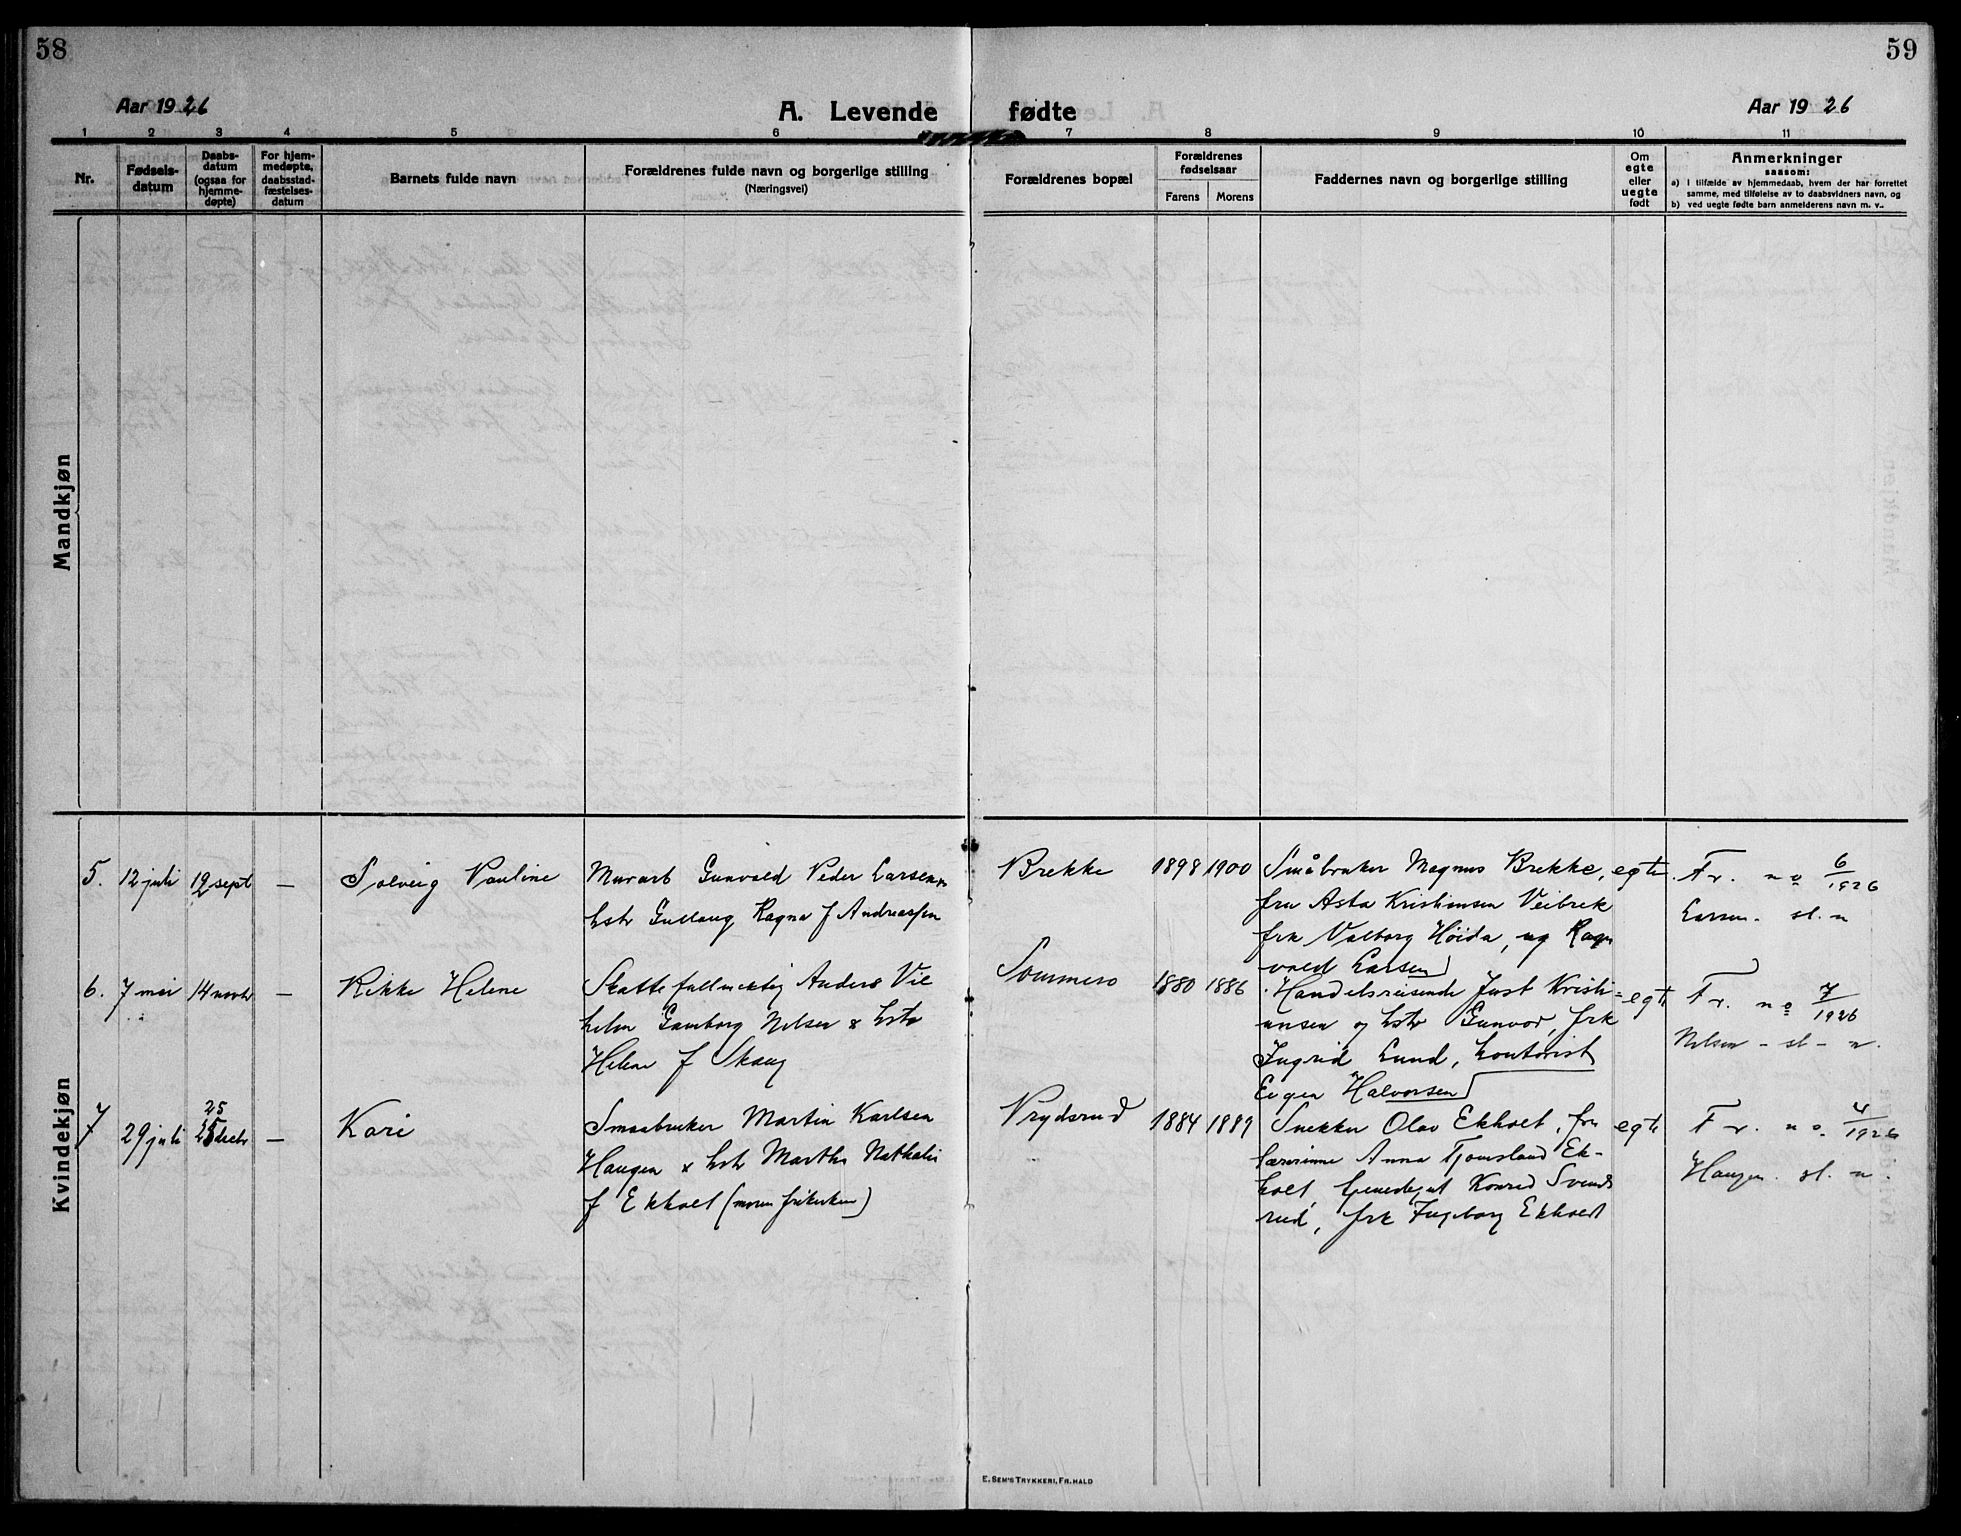 58
59
Aar 1926
A. Levende fødte
Aar 1926
1 2 3 4 5 6 7 8 9 10 11
Nr.
Fødsels-
datum
Daabs-
datum
(ogsaa for
hjemme-
døpte)
For hjem-
medøpte,
daabsstad-
fæstelses-
datum
Barnets fulde navn
Forældrenes fulde navn og borgerlige stilling
(Næringsvei)
Forældrenes bopæl
Forældrenes
fødselsaar
Farens Morens
Faddernes navn og borgerlige stilling
Om
egte
eller
uegte
født
Anmerkninger
saasom:
a) I tilfælde av hjemmedaab, hvem der har forrettet
samme, med tilføielse av to daabsvidners navn, og
b) ved uegte fødte barn anmelderens navn m. v..
Mandkjøn
Kvindekjøn
5. 12 juli 19 sept —
Solveig Pauline
Murarb Gunvald Peder Larsen
hstr Gullaug Ragna f Andreassen
Brekke
1898 1900
Småbruker Magnus Brekke,
fru Asta Kristiansen Veibrek
frk Valborg Höida, og Ragn
vald Larsen
egte
Fr. no 6/1926
Larsen. sl. n
6. 7 mai 14 novbr —
Rikke Helene
Skattefullmektig Anders Vil
helm Gamborg Nilsen & hstr
Helene f Skaug
Sommero
1880 1886
Handelsreisende Just Kristi-
ansen og hstr Gunvor, frk
Ingrid Lund, kontorist
Eugen Halvorsen
egte
Fr. no 7/1926
Nilsen - sl - n.
7 29 juli 25 decbr —
25
Kari
Smaabruker Martin Karlsen
Haugen & hstr Marthe Nathalie
f Ekholt (moren frikirken)
Prydsrud
1884 1889
Snekker Olav Ekholt, fru
lærerinne Anna Tjomsland Ek-
holt, Konrad Svends
rud, frk Ingeborg Ekholt
egte
Fr. no. 4/1926
Haugen. sl. n.
E. Sem's Trykkeri, Fr.hald